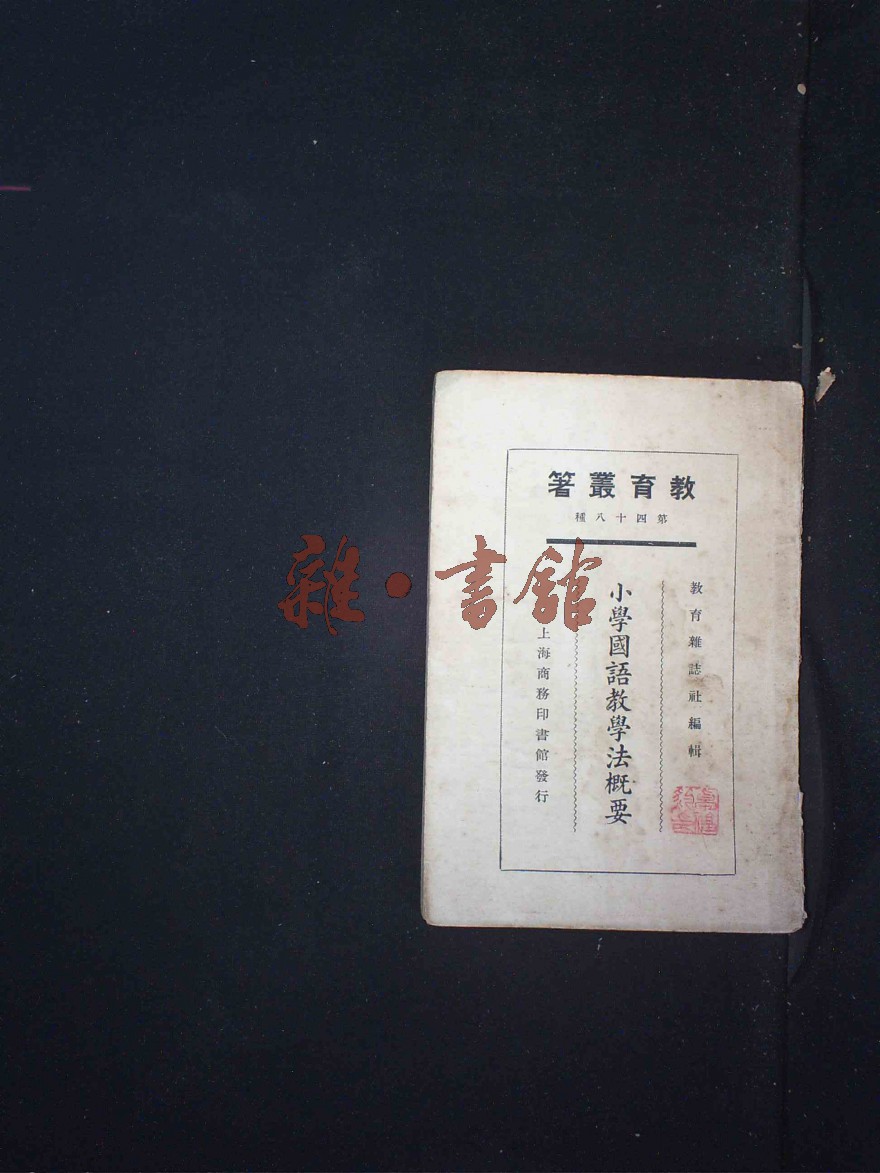 教育叢著
第四十八種
教育雜誌社編輯
小學國語教學法概要
上海商務印書館發行
雜·書館